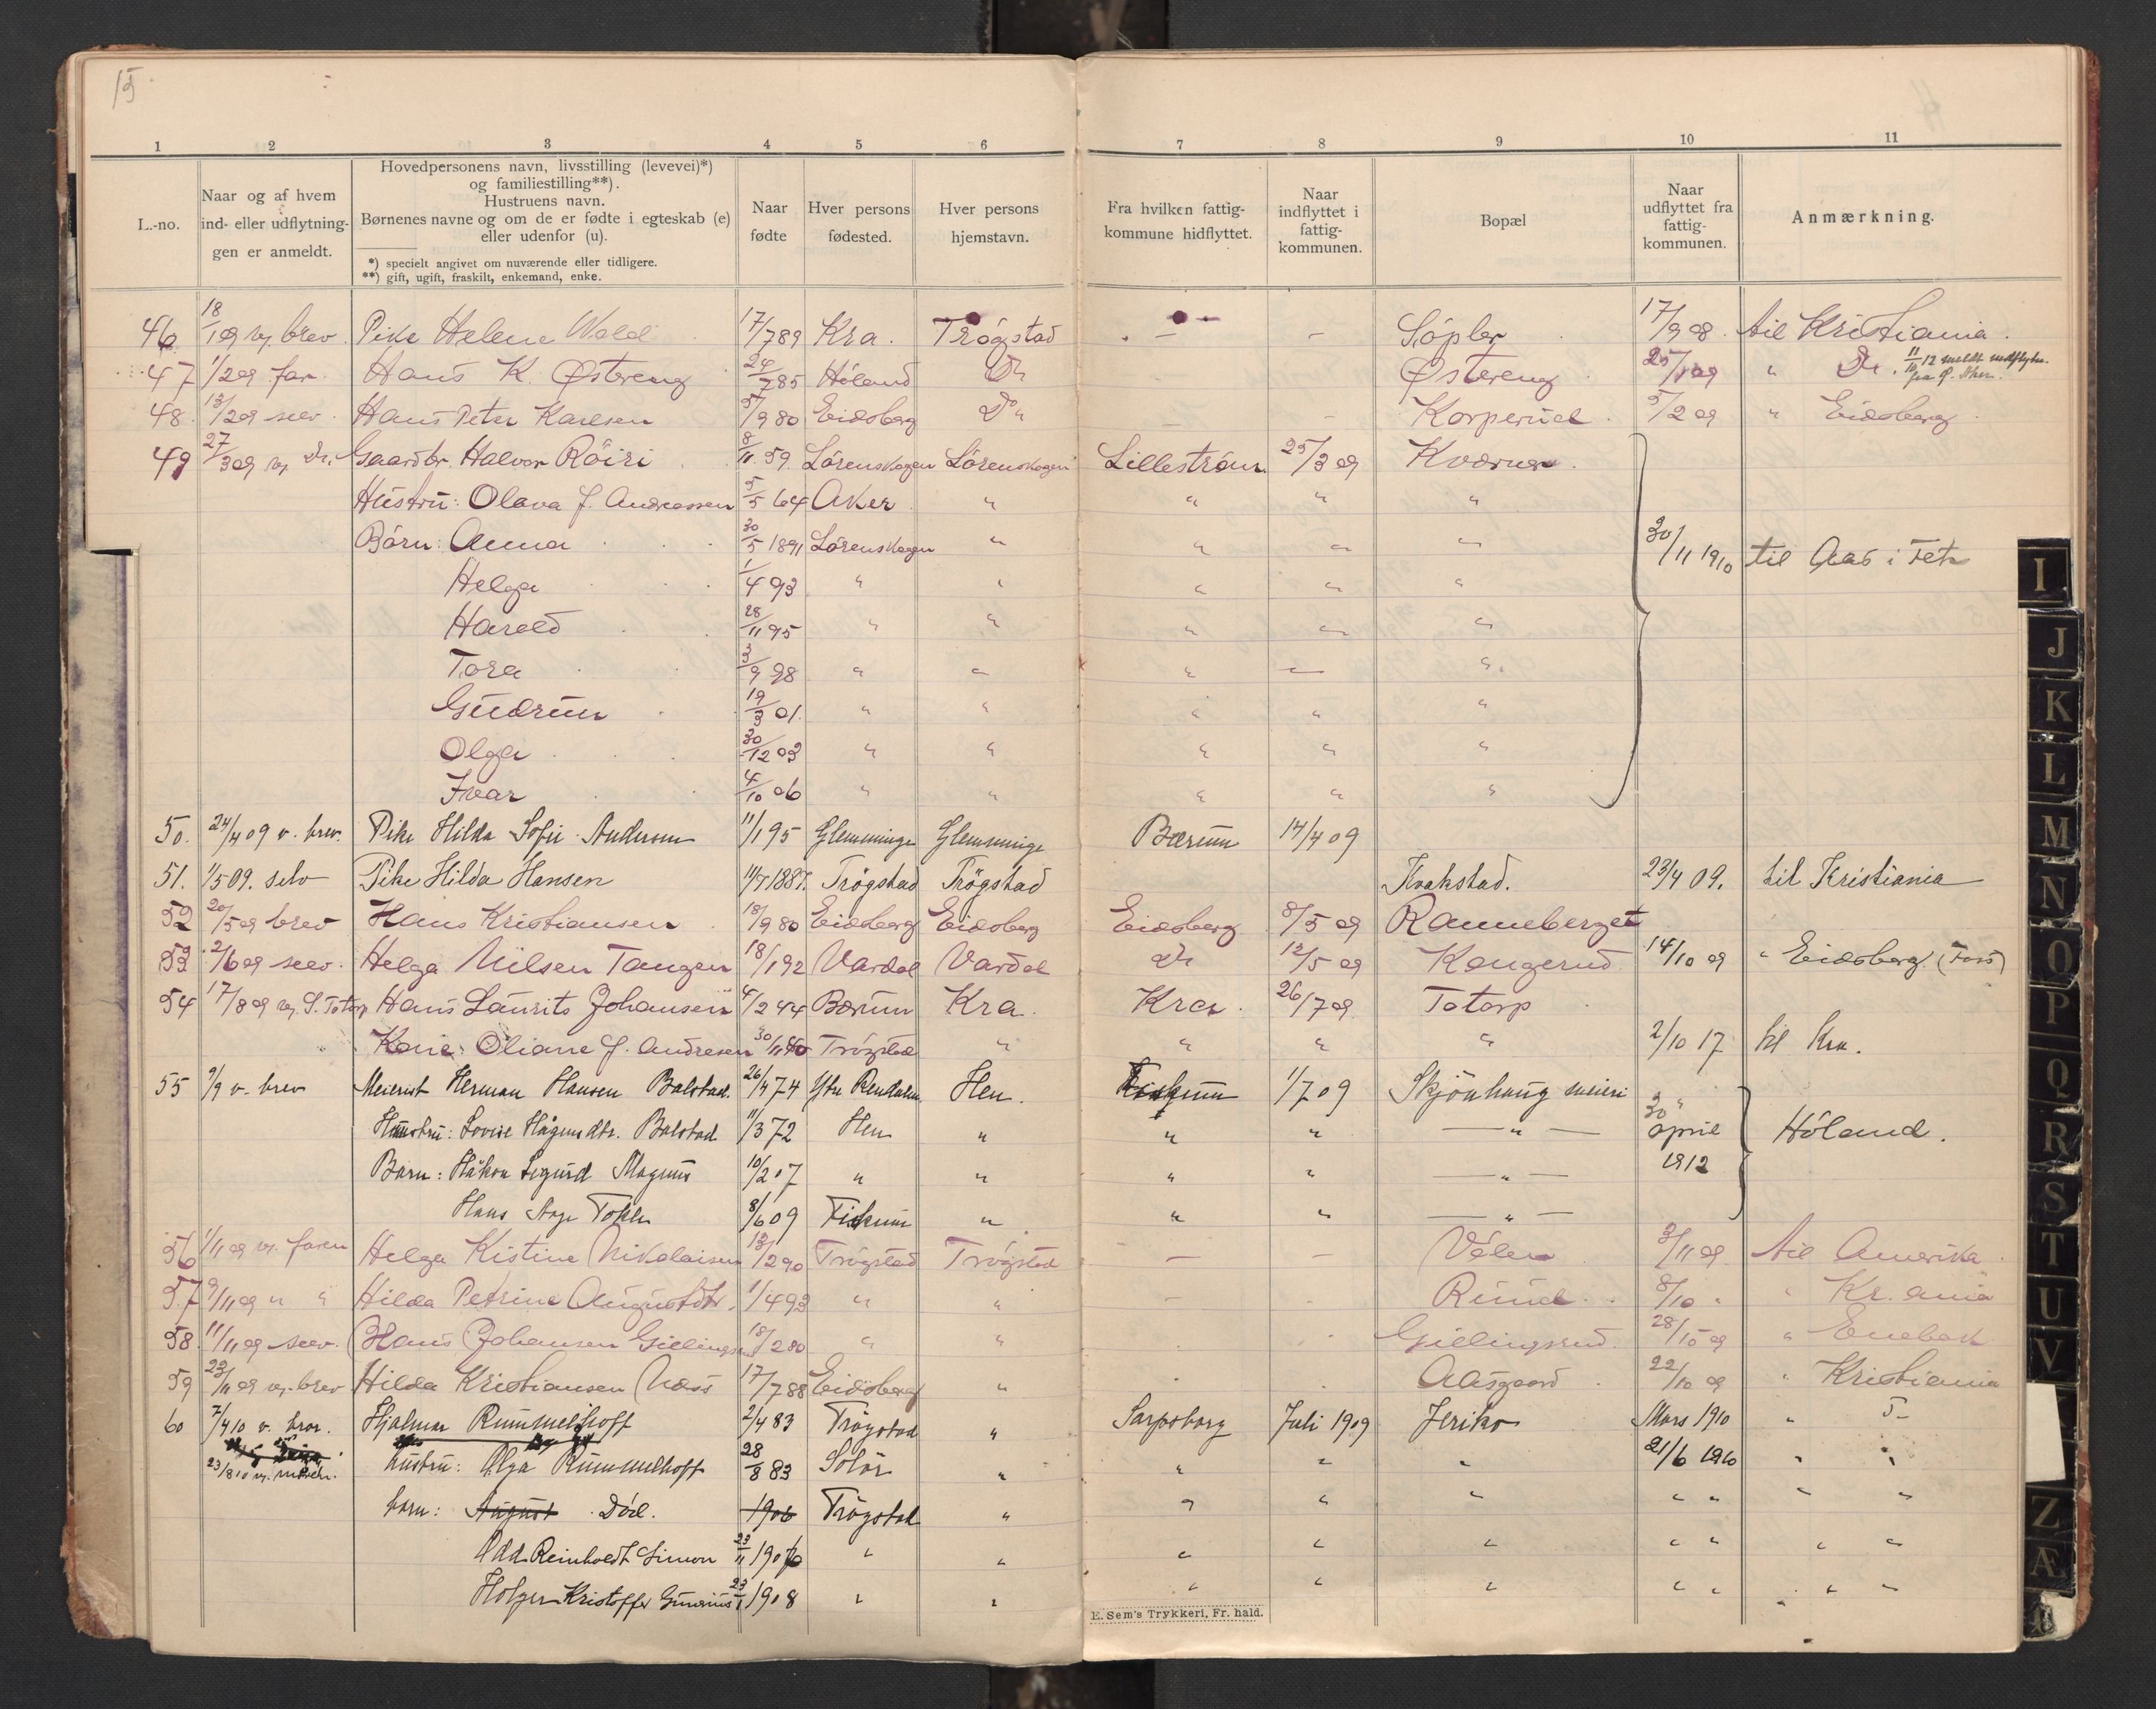 15
1 2 3 4 5 6 7 8 9 10 11
L.-no.
Naar og af hvem
ind- eller udflytnin-
gen er anmeldt.
Hovedpersonens navn, livsstilling (levevei)*)
og familiestilling**).
Hustruens navn.
Børnenes navne og om de er fødte i egteskab (e)
eller udenfor (u).
*) specielt angivet om nuværende eller tidligere.
**) gift, ugift, fraskilt, enkemand, enke.
Naar
fødte
Hver persons
fødested.
Hver persons
hjemstavn.
Fra hvilken fattig-
kommune hidflyttet.
Naar
indflyttet i
fattig-
kommunen.
Bopæl
Naar
udflyttet fra
fattig-
kommunen.
Anmærkning.
46 18/1 09 v. brev. Pike Helene Wold 17/7 89 Kra. Trøgstad — — Søpler 17/9 08. til Kristiania.
47 1/2 09 far. Hans K. Østereng 24/7 85 Høland Do Østereng 25/1 09 " Do. 11/10 12 meldt
fra Ø. Aker.
48. 13/2 09 selv. Hans Peter Karlsen 5/9 80 Eidsberg Do — Korperud 5/2 09 " Eidsberg
49 27/3 09 v. Do. Gaardbr. Halvor Röiri 8/11 59. Lørenskogen Lørenskogen Lillestrøm 25/3 09 Kværner.
Hustru: Olava f. Andreassen 5/5 64 Aker " " " "
Börn: Anna 30/5 1891 Lørenskogen " " " " 30/11 1910 til Aas i Fet
Helga 1/4 93 " " " " "
Harald 28/11 95 " " " " "
Tora 3/9 98 " " " — "
Gudrun 19/3 01. " " " " "
Olga 30/12 03 " " " " "
Ivar 4/10 06 " " " " "
50. 24/4 09 v. brev. Pike Hilda Sofie Andersen 11/1 95 Glemminge Glemminge Bærum 14/4 09
51. 1/5 09. selv Pike Hilda Hansen Trögstad Trögstad Kvakstad. 23/4 09. til Kristiania
52 20/5 09 brev Hans Kristiansen 18/9 80 Eidsberg Eidsberg Eidsberg 8/5 09 Ranneberget
53 2/6 09 selv. Helga Nilsen Tangen 18/1 92 Vardal Vardal Do 12/5 09 Kongerud 14/10 09 " Eidsberg. (Fos)
54 17/8 09 v. S. Totorp Hans Laurits Johansen 4/2 44 Bærum Kra. Kra. 26/7 09 Totorp
Kone: Oliane f. Andresen 30/11 40 Trögstad " " " " 2/10 17 til Kra.
55 9/9 v. brev Meierist Herman Hansen Balstad. 26/4 74 Ytre Rendalen. Hen. Fiskum 1/7 09 Skjönhaug meieri
Hustru: Lovise Hågensdtr. Balstad 11/3 72 Hen " " " — " — 30 april 1912 Höland.
Barn: Håkon Sigurd Magnus 10/2 07 " " " " — " —
Hans Aage Tofte 8/6 09 Fiskum " " " — " —
56 1/11 09 v. faren Helga Kistine Nikolaisen 13/2 90 Trögstad Trögstad — — Vélen 3/11 09 til Amerika.
57 9/11 09 " " Hilda Petrine Augustdtr. 1/4 93 " " — — Ruud. 8/10 " " Kr.ania
58. 11/11 09 selv. Hans Johansen Gillingsrud 18/2 80 " " Gillingsrud. 28/10 09 " Enebak
59 23/11 09 v. brev Hilda Kristiansen Næss 17/7 88 Eidsberg " Aasgaard 22/10 09 " Kristiania
60 7/4 10 v. bror. Hjalmar Rummelhoff 2/4 83 Trögstad " Sarpsborg Juli 1909 Jeriko Mars 1910 "
23/8 10 v. moder. hustru: Olga Rummelhoff 28/8 83 Solör " " " " 21/6 1910 " "
barn: August. Död. 1906 Trögstad " " " " " " " "
Odd Reinholdt Simon 23/11 1906 " " " " " " " " "
Holger Kristoffer Gunerius 23/1 1908 " " " " " " " " "
E. Sem's Trykkeri, Fr. hald.
I
J
K
L
M
N
O
P
Q
R
S
T
U
V
Z
Æ